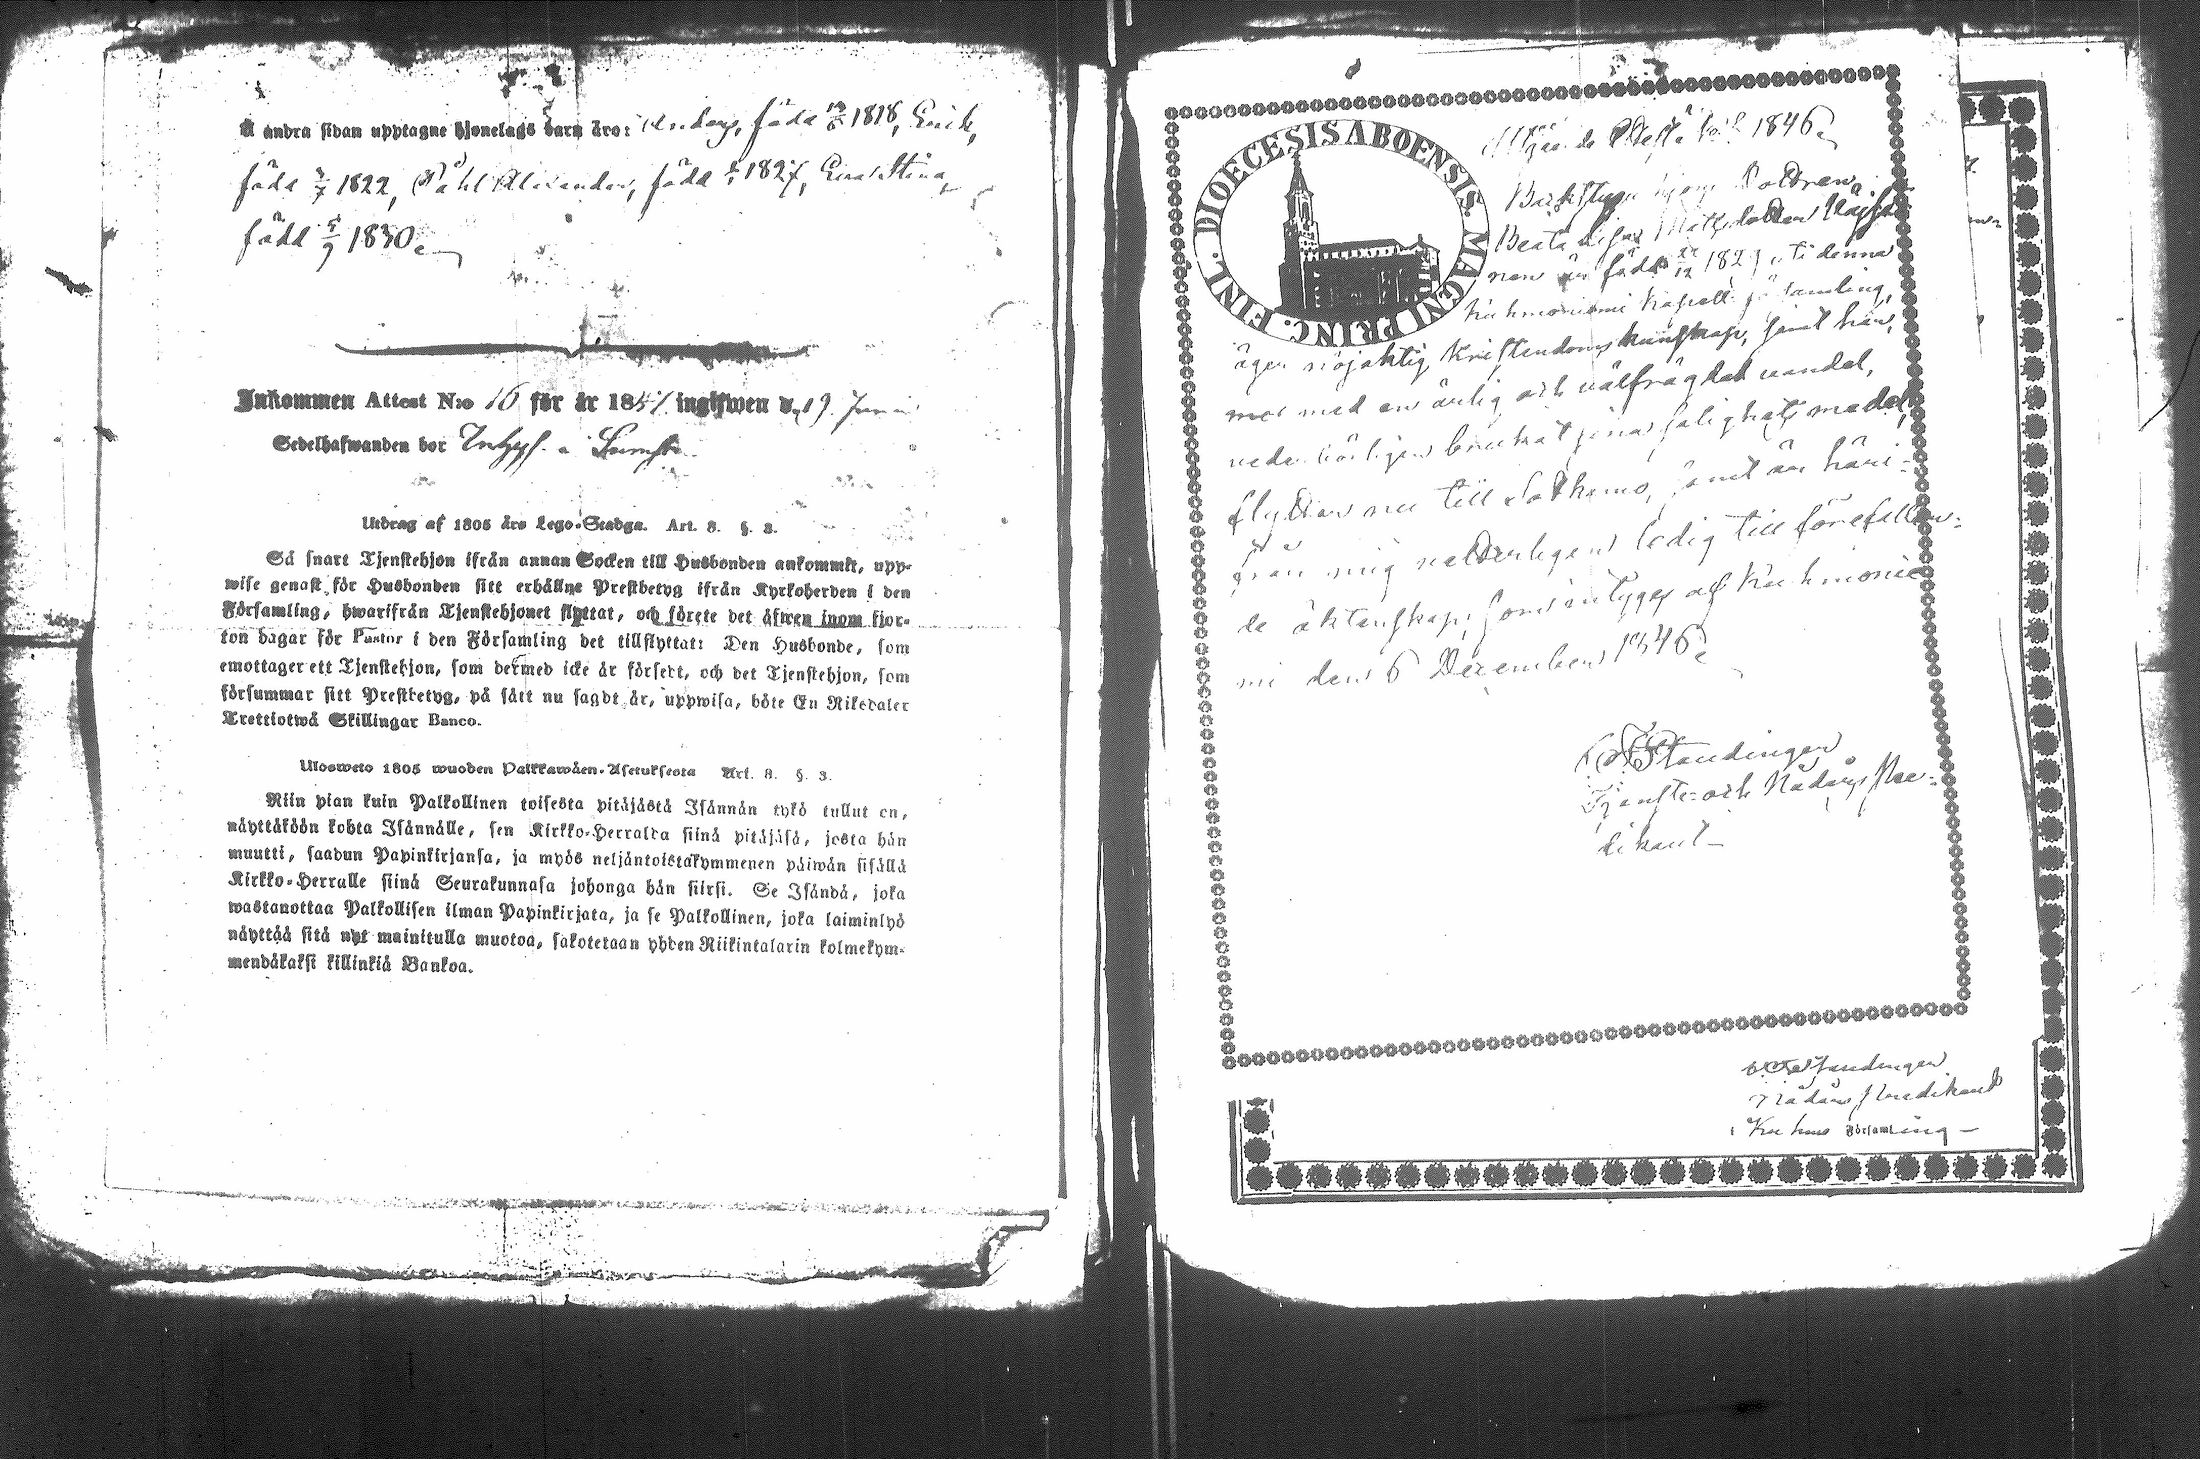 Å andra sidan upptagne hjonelags barn äro: Anders, född 1818, Erick,
född 3/7 1822, Påhl Alexander, född 1827, Eva Stina,
född 5/9 1830.
Inkommen Attest N:o 16 för år 184 ingifwen d. 19 Juni
Sedelhafwanden bor Inhyses i
Utdrag af 1805 års Lego-Stadga. Art. 8. §. 3.
Så snart Tjenstehjon ifrån annan Socken till Husbonden ankommit, upp-
wise genast för Husbonden sitt erhållne Prestbetyg ifrån Kyrkoherden i den
Församling, hwarifrån Tjenstehjonet flyttat, och förete det äfwen inom fjor-
ton dagar för Pastor i den Församling det tillflyttat: Den Husbonde, som
emottager ett Tjenstehjon, som dermed icke är försedt, och det Tjenstehjon, som
försummar sitt Prestbetyg, på sätt nu sagdt är, uppwisa, böte En Riksdaler
Trettiotwå Skillingar Banco.
Ulosweto 1805 wuoden Palkkawäen-Asetuksesta Art. 8. §. 3.
Niin pian kuin Palkollinen toisesta pitäjästä Isännän tykö tullut on,
näyttäköön kohta Isännälle, sen Kirkko-Herralta siinä pitäjäsä, josta hän
muutti, saadun Papinkirjansa, ja myös neljäntoistakymmenen päiwän sisällä
Kirkko-Herralle siinä Seurakunnasa johonga hän siirsi. Se Isändä, joka
wastanottaa Palkollisen ilman Papinkirjata, ja se Palkollinen, joka laiminlyö
näyttää sitä nyt mainitulla muotoa, sakotetaan yhden Riikintalarin kolmekym-
mendäkaksi killinkiä Bankoa.
DIOECESIS ABOENSIS. MAGNI PRINC. FINL.
Utgående Attest 1846.
Beata Lisa Mattsdotter
nen är född 1829 i denna
Kuhmoniemi Kapell församling,
äger nöjaktig Kristendoms kunskap, samt har,
med en ärlig och välfrägdad vandel,
vederbörligen brukat sina salighets medel,
flyttar nu till Sotkamo, samt är häri-
från mig veterligen ledig till förefallan-
de äktenskap; som intygas af Kuhmonie-
mi den 6 December 1846.
Standinger
Tjenste- och Nådårs Pre-
dikant
Standinger
Nådårs Predikant
Kuhmo Församling